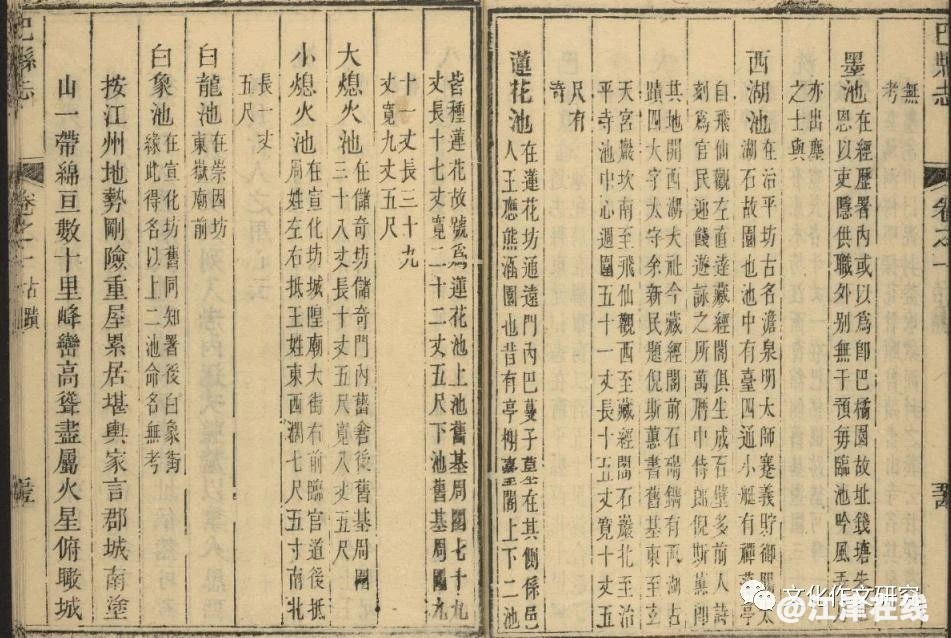 巴縣志
卷之一
無
考
墨池
在經歷署內或以為卽巴橘園故址錢塘朱
恩以吏隱供職外别無干預每臨池吟風弄
亦出塵
之士與
西湖池
在治平坊古名澹泉明太師蹇義貯御賜太
湖石故園也池中有臺四通小艇有禪亭
自飛仙觀左直至藏經閣俱生成石壁多前人詩
刻為官民遊餞遊詠之所萬曆中侍郎倪斯蕙
其地開西湖大社今藏經閣前石碣鐫有西湖古
蹟四大字太守余新民題倪斯蕙書舊基東至玄
天宮巖坎南至飛仙觀西至藏經閣石巖北至治
平寺池中心週圍五十一丈長五十五丈寬十丈五
尺有
奇
蓮花池
在蓮花坊通遠門內巴蔓子墓在其側係邑
人王應熊涵園也昔有亭榭臺閣上下二池
皆種蓮花故號為蓮花池上池舊基周圍七十九
丈長十七丈寬二十二丈五尺下池舊基周圍九
十一丈長三十九
丈寬九丈五尺
大熄火池
在儲奇坊儲奇門內舊舍後舊基周圍
三十八丈長十丈五尺寬八丈五尺
小熄火池
在宣化坊城隍廟大街右前臨官道後抵
周姓左右抵王姓東西濶七尺五寸南北
長一丈
五尺
白龍池
在崇因坊
東嶽廟前
白象池
在宣化坊舊同知署後白象街
緣此得名以上二池命名無考
按江州地勢剛險重屋累居堪輿家言郡城南塗
山一帶綿亘數十里峰巒高聳盡屬火星俯瞰城
巴縣志
卷之一 古蹟
文化作文研究
@江津在线